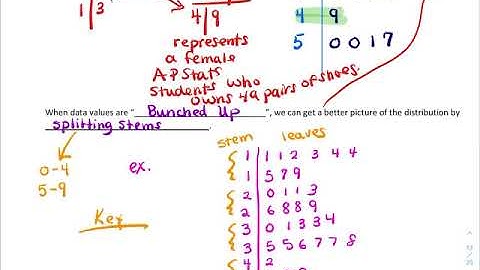 1 | 3
4 | 9
4 9
5 0 0 1 7
represents
a female
AP Stats
Students who
owns 49 pairs of shoes.
When data values are “ Bunched Up ”, we can get a better picture of the distribution by
splitting stems.
stem leaves
0-4
5-9
ex.
Key
1 | 1 1 2 3 4 4
1 | 5 7 9
2 | 0 1 1 3
2 | 6 8 8 9
3 | 0 1 3 3 4
3 | 5 5 6 7 7 8
4 | 2